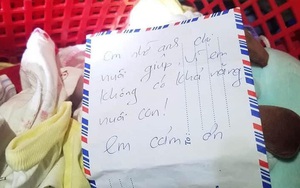 Em nhờ anh chị
nuôi giúp. Vì em
không có khả năng
nuôi con!
Em cảm ơn